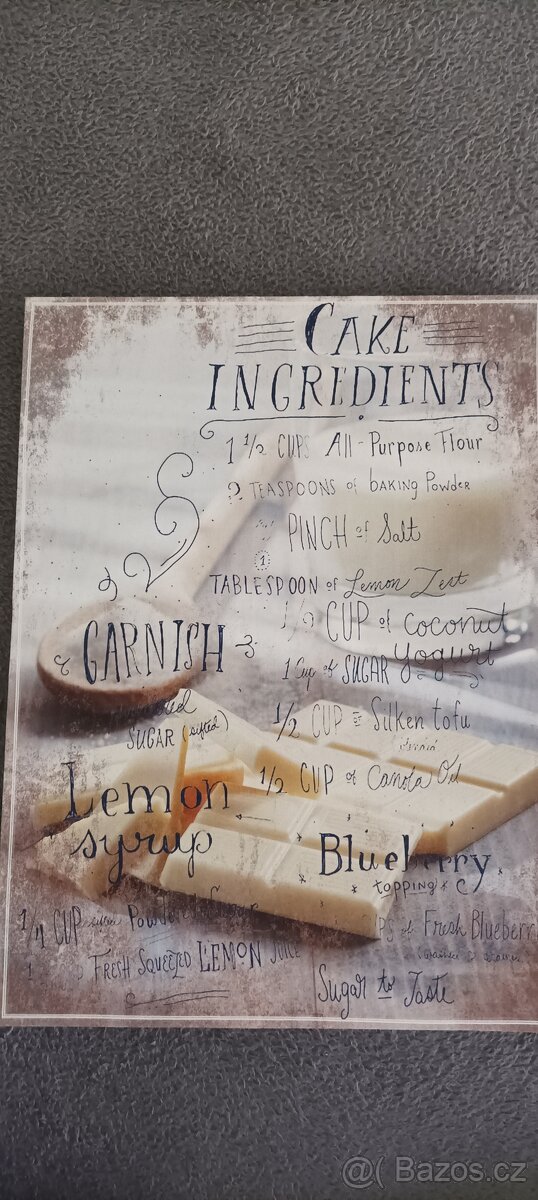 CAKE
INGREDIENTS
1 1/2 CUPS All-Purpose Flour
2 TEASPOONS of baking Powder
PINCH of Salt
1
TABLESPOON of Lemon Zest
1/2 CUP of coconut
yogurt
1 Cup of SUGAR
1/2 CUP of Silken tofu
1/2 CUP of Canola Oil
GARNISH
SUGAR (sifted)
Lemon
syrup
1/4 CUP Powdered Sugar
FRESH SQUEEZED LEMON JUICE
Blueberry
topping
of Fresh Blueberri
Sugar to Taste
@ Bazos.cz